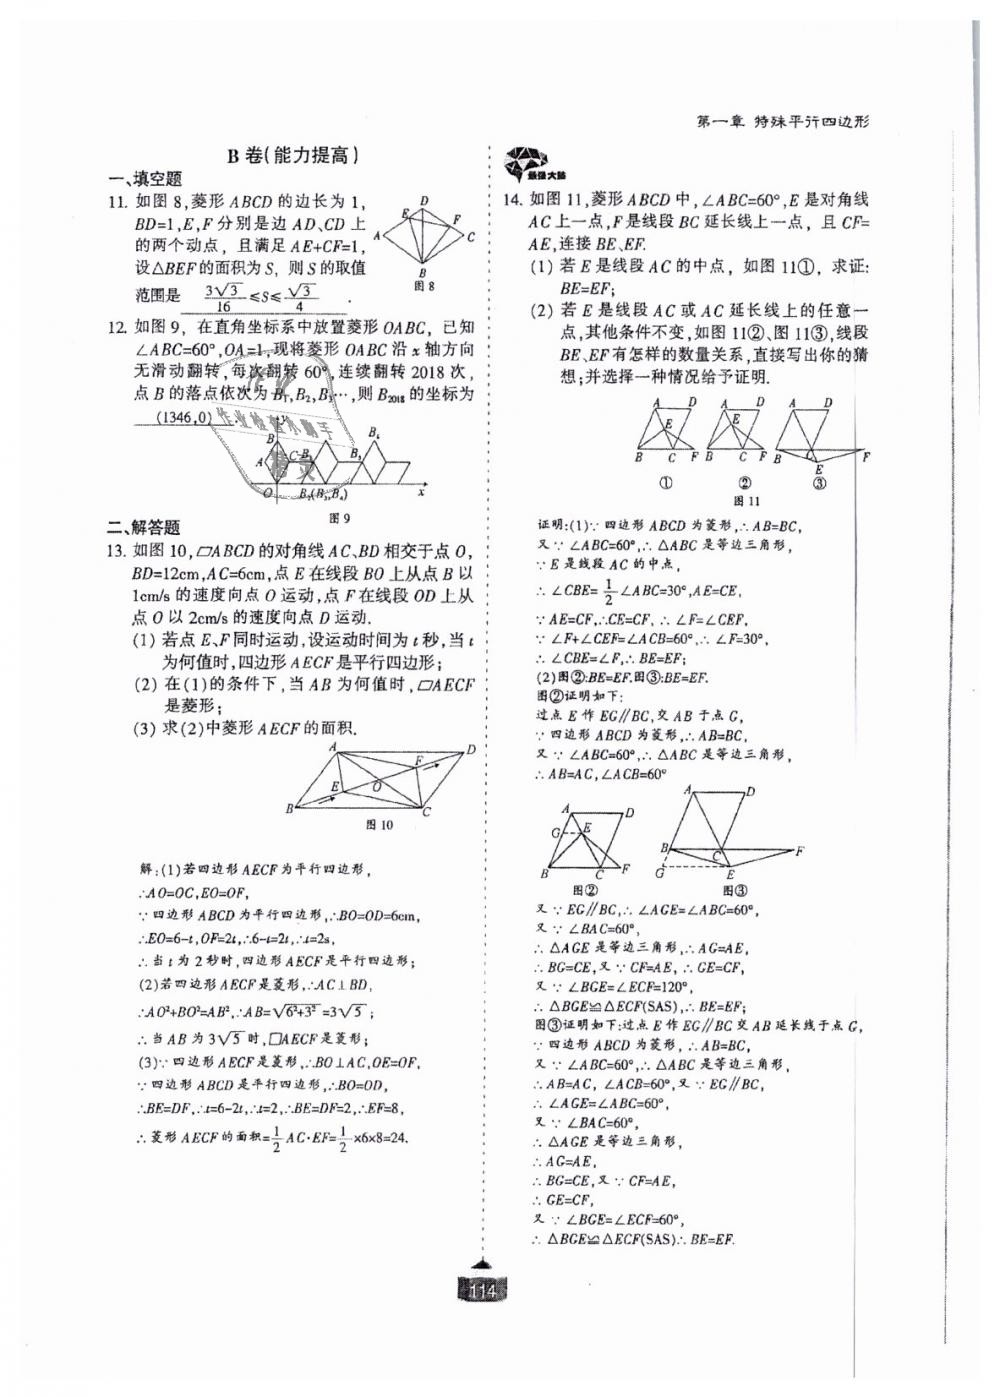 第一章 特殊平行四边形
B 卷(能力提高)
一、填空题
11. 如图 8,菱形 ABCD 的边长为 1,
BD=1,E,F 分别是边 AD、CD 上
的两个动点，且满足 AE+CF=1,
设△BEF的面积为 S，则 S 的取值
范围是 3√3/16 ≤S≤ √3/4 .
D
E
F
A
C
B
图 8
12. 如图 9，在直角坐标系中放置菱形 OABC，已知
∠ABC=60°,OA=1,现将菱形 OABC 沿 x 轴方向
无滑动翻转,每次翻转 60°,连续翻转 2018 次,
点 B 的落点依次为 B₁,B₂,B₃…,则 B₂₀₁₈ 的坐标为
(1346,0) .
作业检查小帮手
y
B
A
C
B₁
B₅
B₆
O
B₂(B₃,B₄)
x
图 9
二、解答题
13. 如图 10,▱ABCD 的对角线 AC、BD 相交于点 O,
BD=12cm,AC=6cm,点 E 在线段 BO 上从点 B 以
1cm/s 的速度向点 O 运动,点 F 在线段 OD 上从
点 O 以 2cm/s 的速度向点 D 运动.
(1) 若点 E、F 同时运动,设运动时间为 t 秒,当 t
为何值时,四边形 AECF 是平行四边形;
(2) 在(1)的条件下,当 AB 为何值时,▱AECF
是菱形;
(3) 求(2)中菱形 AECF 的面积.
A
D
F
E
O
B
C
图 10
解:(1)若四边形 AECF 为平行四边形,
∴AO=OC,EO=OF,
∵四边形 ABCD 为平行四边形,∴BO=OD=6cm,
∴EO=6-t,OF=2t,∴6-t=2t,∴t=2s,
∴当 t 为 2 秒时,四边形 AECF 是平行四边形;
(2)若四边形 AECF 是菱形,∴AC⊥BD,
∴AO²+BO²=AB²,∴AB=√6²+3² =3√5 ;
∴当 AB 为 3√5 时,▱AECF 是菱形;
(3)∵四边形 AECF 是菱形,∴BO⊥AC,OE=OF,
∵四边形 ABCD 是平行四边形,∴BO=OD,
∴BE=DF,∴t=6-2t,∴t=2,∴BE=DF=2,∴EF=8,
∴菱形 AECF 的面积=1/2 AC·EF=1/2 ×6×8=24.
最强大脑
14. 如图 11,菱形 ABCD 中,∠ABC=60°,E 是对角线
AC 上一点,F 是线段 BC 延长线上一点，且 CF=
AE,连接 BE、EF.
(1) 若 E 是线段 AC 的中点，如图 11①，求证:
BE=EF;
(2) 若 E 是线段 AC 或 AC 延长线上的任意一
点,其他条件不变,如图 11②、图 11③,线段
BE、EF 有怎样的数量关系,直接写出你的猜
想;并选择一种情况给予证明.
A D A D A D
E E
B C F B C F B C F
E
① ② ③
图 11
证明:(1)∵四边形 ABCD 为菱形,∴AB=BC,
又∵∠ABC=60°,∴△ABC 是等边三角形,
∵E 是线段 AC 的中点,
∴∠CBE= 1/2 ∠ABC=30°,AE=CE,
∵AE=CF,∴CE=CF, ∴∠F=∠CEF,
∵∠F+∠CEF=∠ACB=60°,∴∠F=30°,
∴∠CBE=∠F,∴BE=EF;
(2)图②:BE=EF.图③:BE=EF.
图②证明如下:
过点 E 作 EG∥BC,交 AB 于点 G,
∵四边形 ABCD 为菱形,∴AB=BC,
又∵∠ABC=60°,∴△ABC 是等边三角形,
∴AB=AC,∠ACB=60°
A D
G E
B C F
图②
A D
B C F
G E
图③
又∵EG∥BC,∴∠AGE=∠ABC=60°,
又∵∠BAC=60°,
∴△AGE 是等边三角形,∴AG=AE,
∴BG=CE,又∵CF=AE, ∴GE=CF,
又∵∠BGE=∠ECF=120°,
∴△BGE≌△ECF(SAS),∴BE=EF;
图③证明如下:过点 E 作 EG∥BC 交 AB 延长线于点 G,
∵四边形 ABCD 为菱形, ∴AB=BC,
又∵∠ABC=60°,∴△ABC 是等边三角形,
∴AB=AC, ∠ACB=60°,又∵EG∥BC,
∴∠AGE=∠ABC=60°,
又∵∠BAC=60°,
∴△AGE 是等边三角形,
∴AG=AE,
∴BG=CE,又∵CF=AE,
∴GE=CF,
又∵∠BGE=∠ECF=60°,
∴△BGE≌△ECF(SAS)∴BE=EF.
114